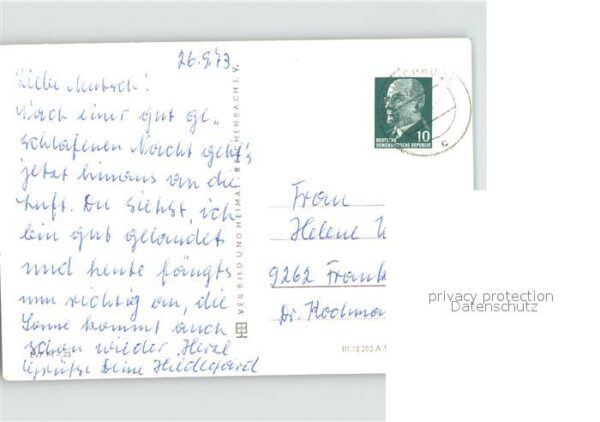 26.9.73
Liebe Mutsch!
Nach einer gut ge„
schlafenen Nacht geht's
jetzt hinaus an die
Luft. Du siehst, ich
bin gut gelandet
und heute fängts
nun richtig an, die
Sonne kommt auch
schon wieder. Herzl
Grüße Deine Hildegard
VEB BILD UND HEIMAT · REICHENBACH I. V.
10
DEUTSCHE
DEMOKRATISCHE REPUBLIK
c
Frau
Helene
9262 Frank
Dr. Kochman
privacy protection
Datenschutz